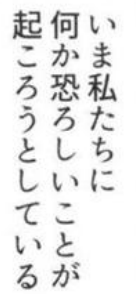 いま私たちに
何か恐ろしいことが
起ころうとしている